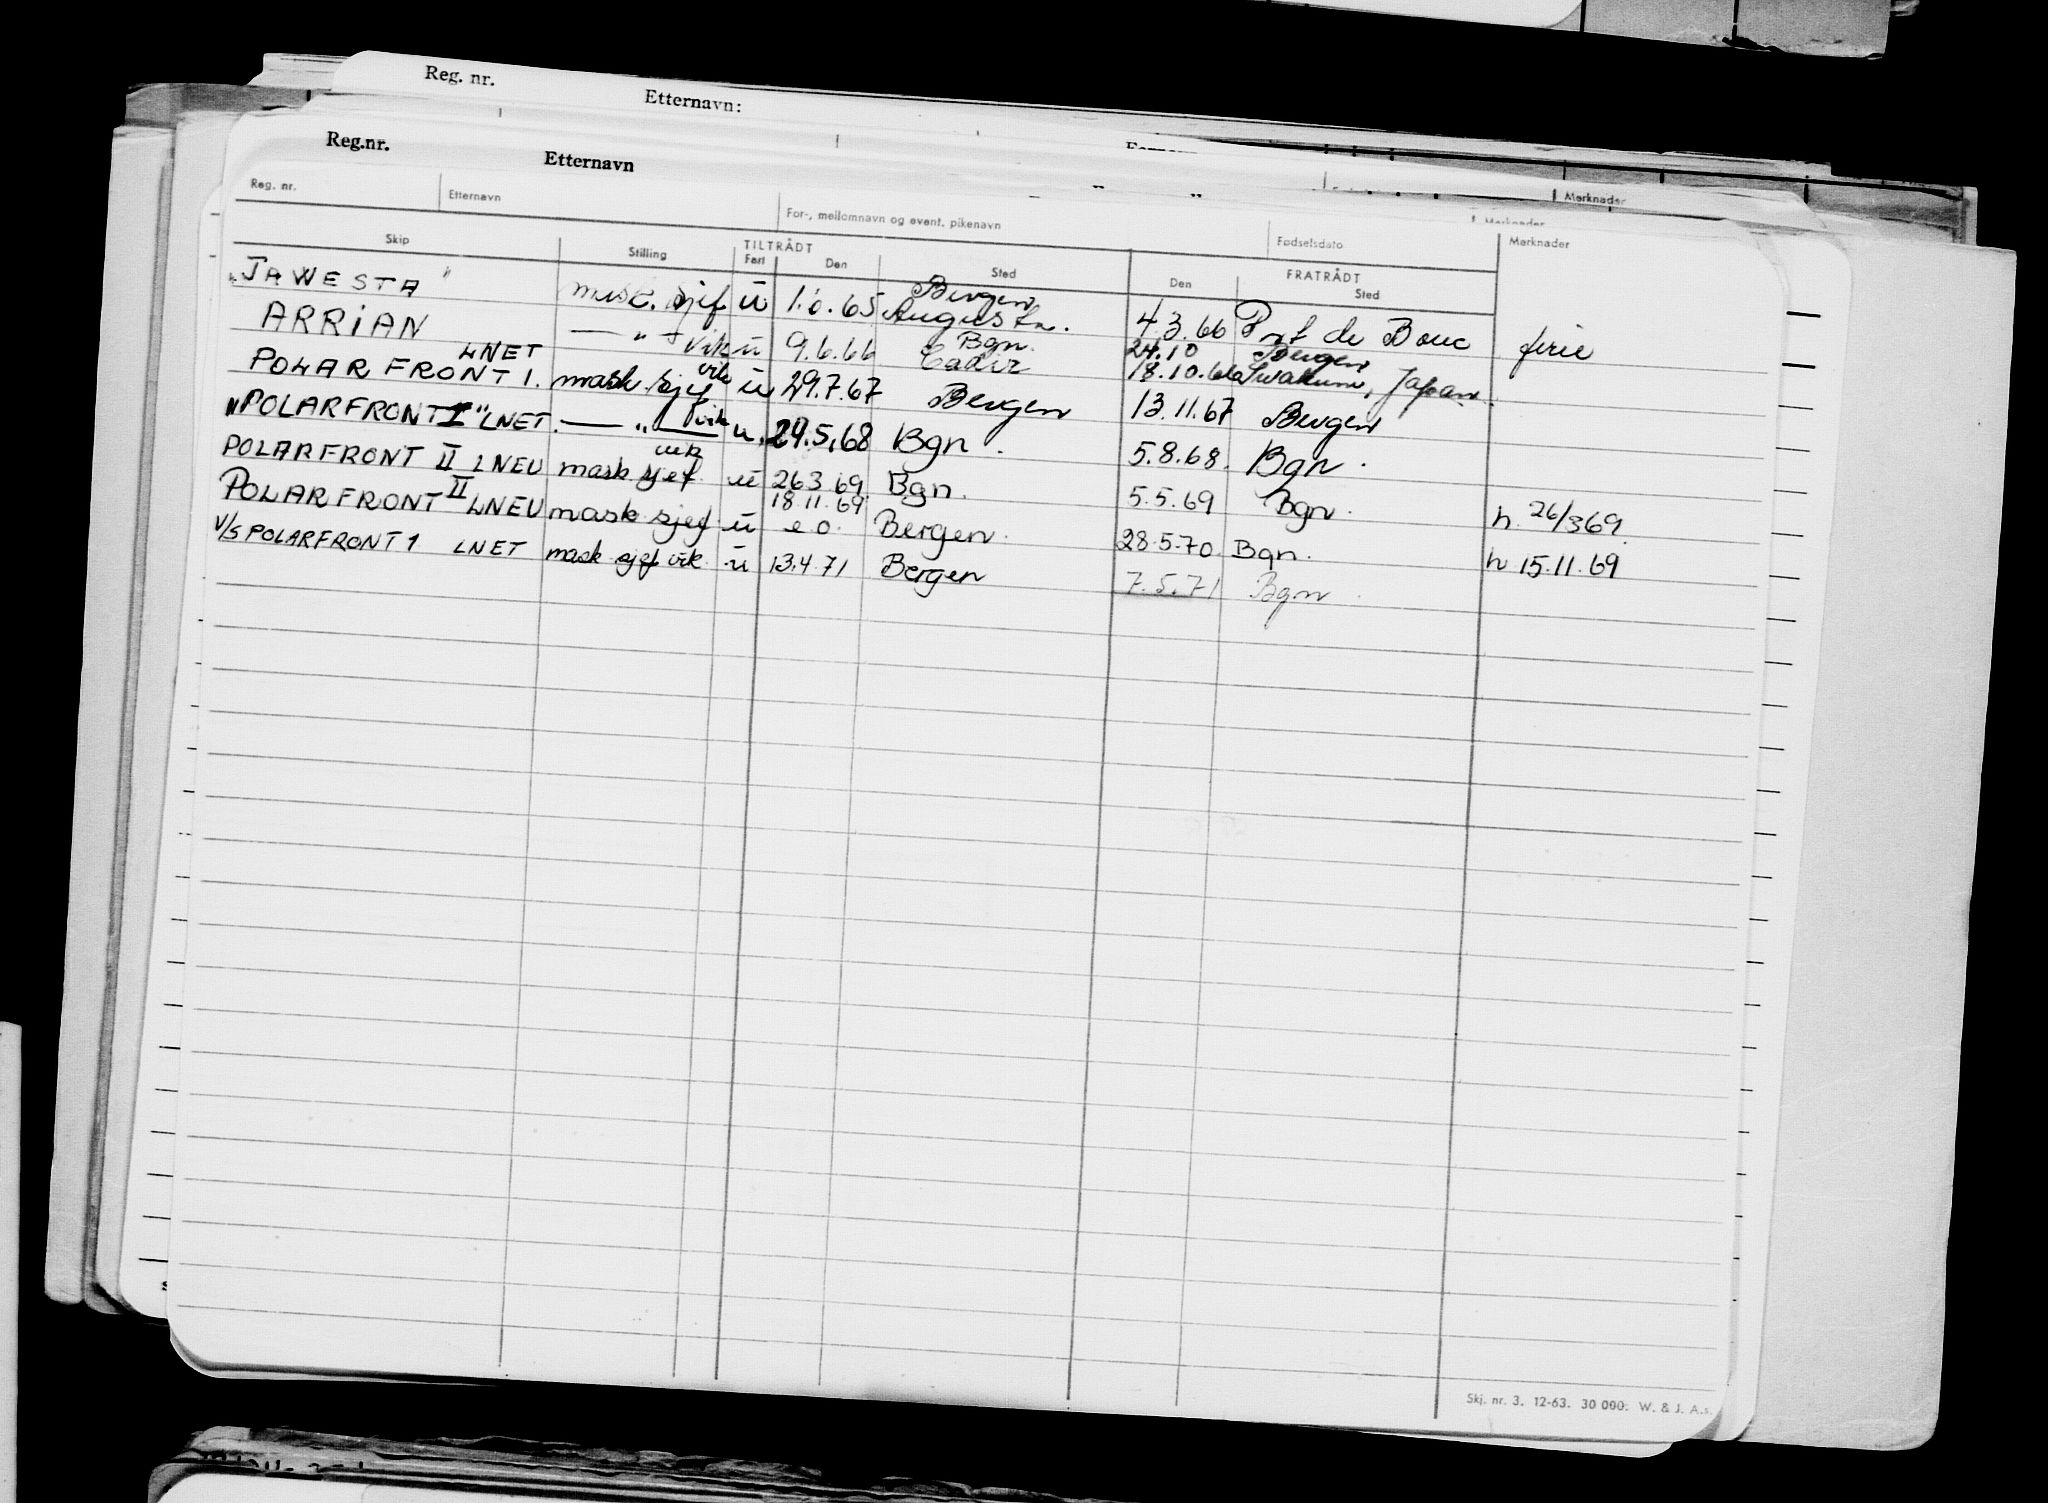 Reg. nr. Etternavn:
Reg.nr. Etternavn
Merknader
Reg. nr. Etternavn For-, mellomnavn og event. pikenavn Fødselsdato Merknader
Skip Stilling TILTRÅDT FRATRÅDT
Fart Den Sted Den Sted
Bergen
"JAWESTA" mask. sjef u 1.0.65 Augusta. 4.3.66 Port de Bouc ferie
Bgn. 24.10 Bergen
ARRIAN — " — vik u 9.6.66 Cadiz 18.10.66 Iwakuni, Japan.
LNET vik
POLARFRONT I. mask. sjef u 29.7.67 Bergen 13.11.67 Bergen
vik
"POLARFRONT I" LNET. — " — u. 29.5.68 Bgn. 5.8.68. Bgn.
vik
POLARFRONT II LNEU mask sjef u 26.3.69. Bgn. 5.5.69 Bgn. h. 26/369.
18.11.69
POLARFRONT II LNEU mask sjef u e.o. Bergen. 28.5.70. Bgn. h 15.11.69
V/S POLARFRONT 1 LNET mask sjef vik u 13.4.71 Bergen 7.5.71 Bgn.
Skj. nr. 3. 12-63. 30 000. W. & J. A.s.